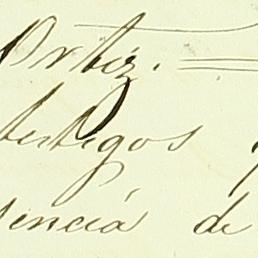 Ortiz.
testigos
sencia de